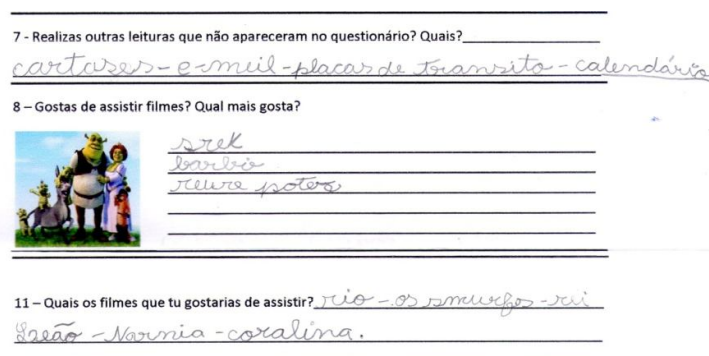 7 - Realizas outras leituras que não apareceram no questionário? Quais?
cartases - e-meil - placas de transito - calendário
8 – Gostas de assistir filmes? Qual mais gosta?
srek
barbie
reure poter
11 – Quais os filmes que tu gostarias de assistir? rio - os smurfos - rui
Leão - Narnia - coralina.